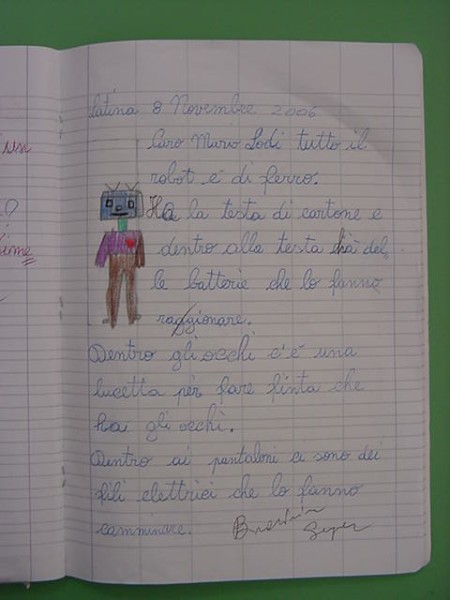 sun
Latina 8 Novembre 2006
Caro Mario Lodi tutto il
robot é di ferro.
Ha la testa di cartone e
dentro alla testa ha del
le batterie che lo fanno
raggionare.
Dentro gli occhi c'é una
lucetta per fare finta che
hai gli occhi.
Dentro ai pantaloni ci sono dei
fili elettrici che lo fanno
camminare.